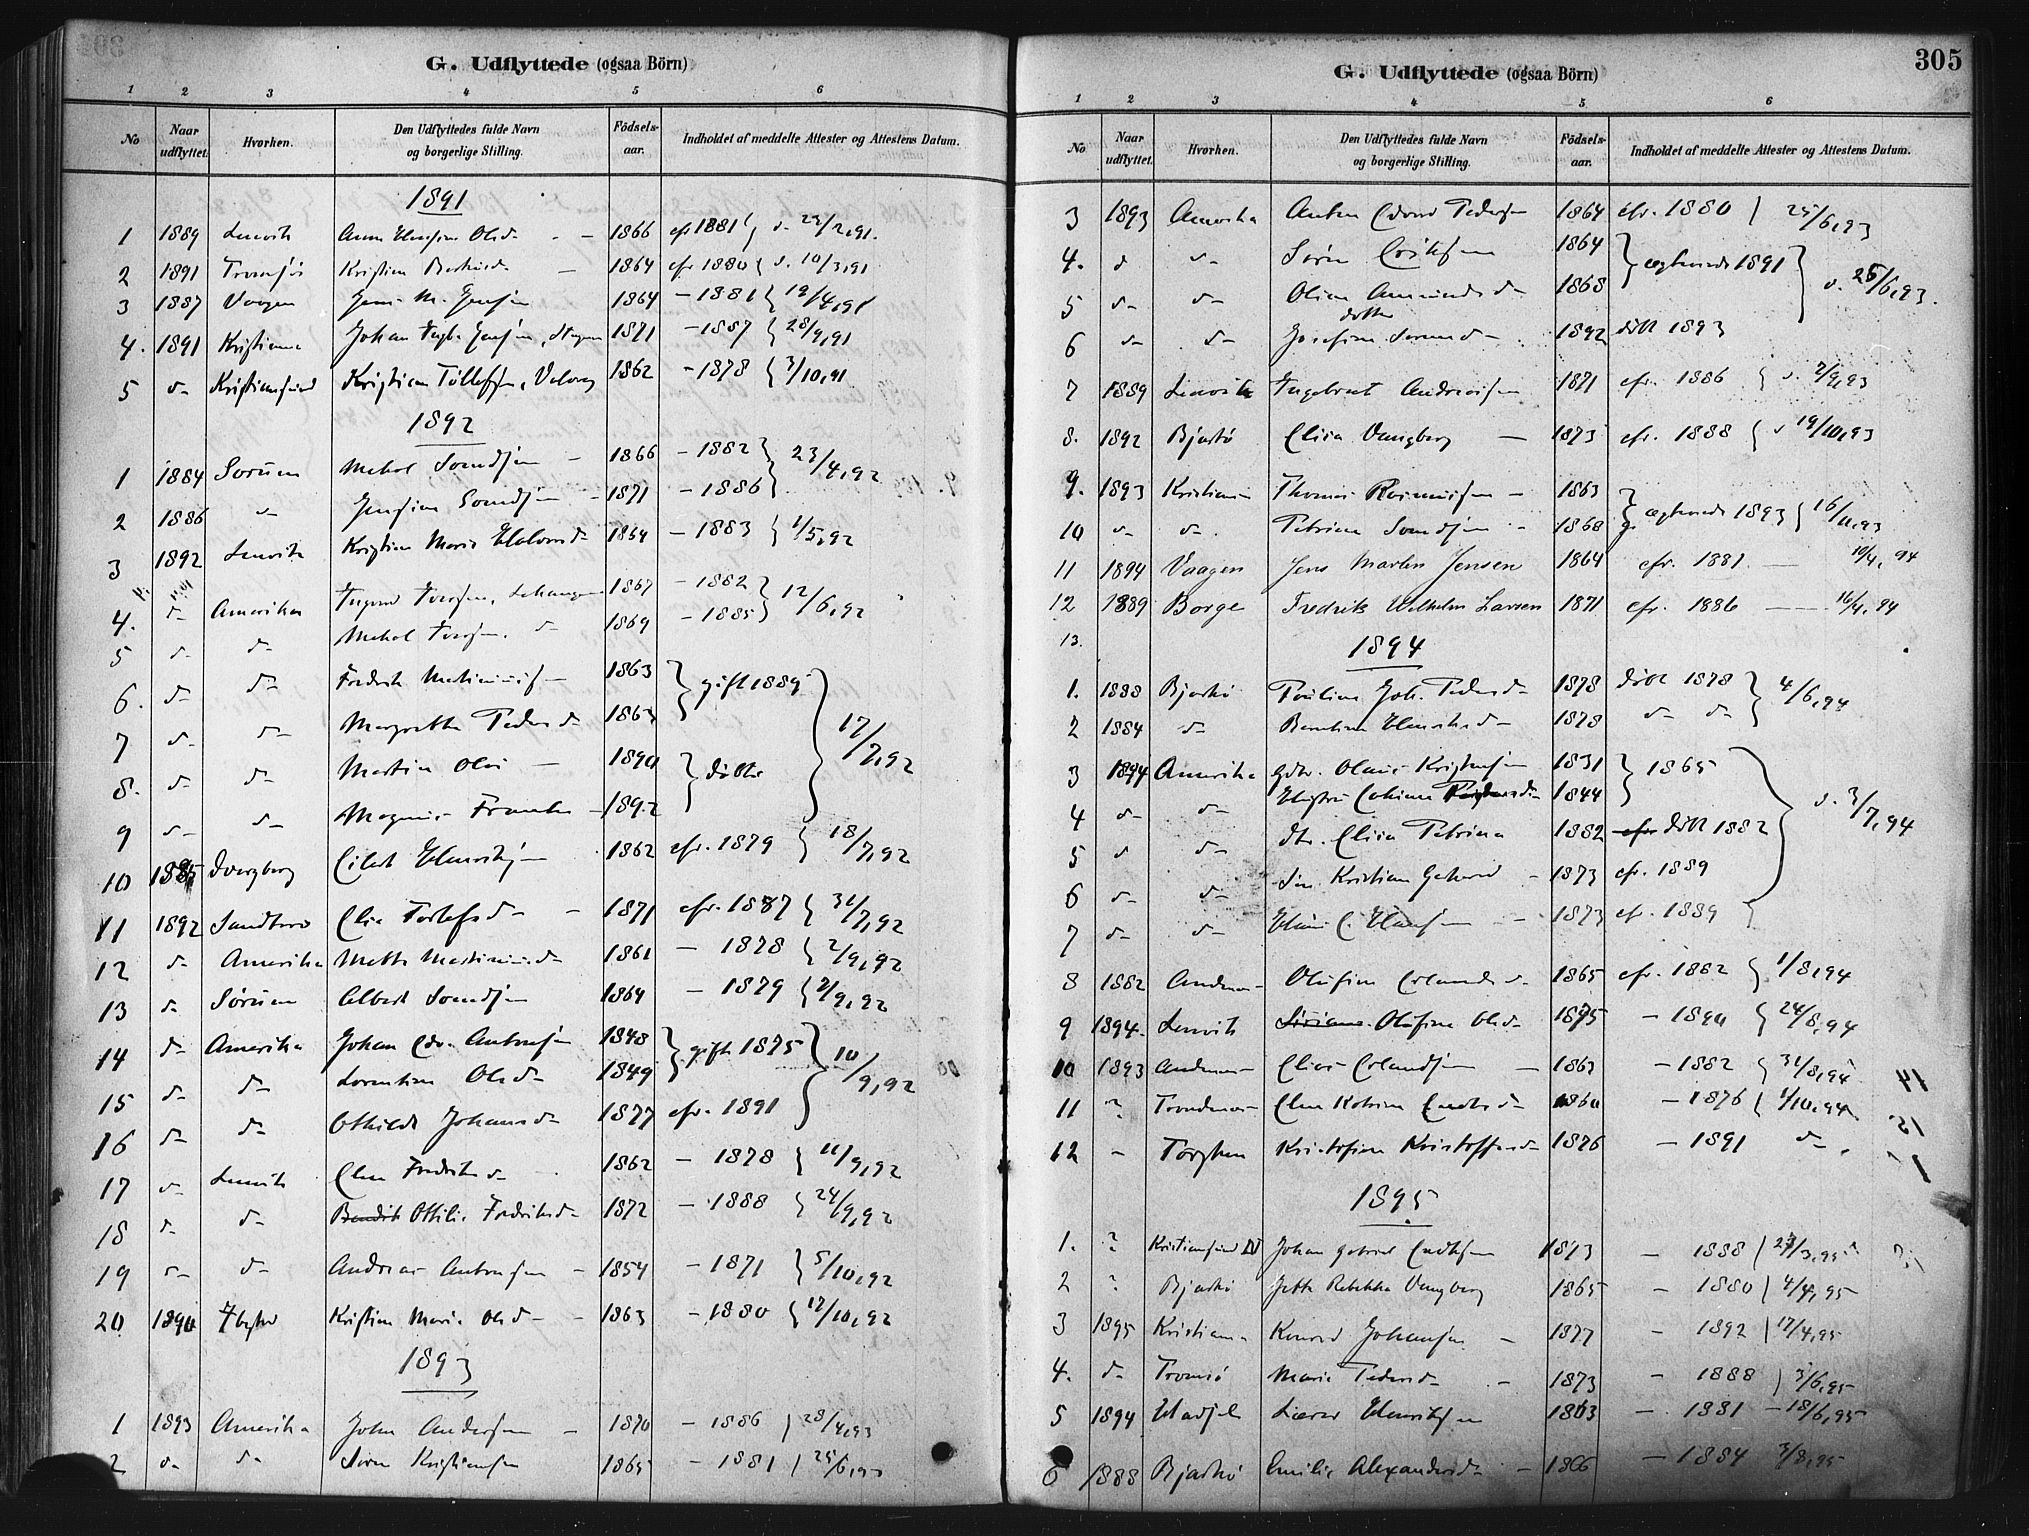 G. Udflyttede (ogsaa Börn)
1 2 3 4 5 6
No Naar udflyttet. Hvorhen. Den Udflyttedes fulde Navn og borgerlige Stilling. Födsels-aar. Indholdet af meddelte Attester og Attestens Datum.
1891
1 1889 Lenvik Anna Olsd 1866 cfr 1881 23/2,91.
2 1891 Tromsö Kristina 1864 cfr 1880 10/3,91
3 1887 Vaagen Jens M. Jensen 1864 - 1881 19/4,91
4. 1891 Kristiania Johan Jensen 1871 - 1887 28/9,91
5 d- Kristiansund Kristian Tollefsen, 1862 - 1878 3/10,91
1892
1 1884 Sorum Mekal 1866 - 1882 23/4,92
2 1886 d- Jensine 1871 - 1886
3 1892 Lenvik Kristine Marie Halvorsd 1864 - 1883 1/5,92
4. d- Amerika Ingvard Iversen, 1867 - 1882 12/6,92
5 d- d- Mekal Iversen d- 1869 - 1885
6. d- d- Fredrik Martinusen 1863 gift 1889
7 d- d- Margrethe Pedersd 1863 17/7,92
8. d- d- Martin Olai 1890 döbte
9 d- d- Magnus Franke - 1892
10 1885 Dverberg Eilert 1862 cfr. 1879 18/7,92
11 1892 Sandtorv Elia 1871 cfr. 1887 31/7,92
12 d- Amerika Mette Martinusd. 1861 - 1878 2/9,92
13 d- Sörum Albert 1864 - 1879 2/9,92
14 d- Amerika Johan Edv. Antonsen 1848 gift 1875 10/9,92
15 d- d- Lorentine Olsd- 1849
16 d- d- Othilde Johansd- 1877 cfr. 1891
17 d- Lenvik Elen Fredriksd 1862 - 1878 11/9,92
18 d- d- Ottilie Fredriksd- 1872 - 1888 24/9,92
19 d- d- Andreas Antonsen - 1854 - 1871 5/10,92
20 1890 Ibestad Kristine Marie Olsd- 1863 - 1880 12/10,92
1893
1 1893 Amerika John Andersen 1870 - 1886 28/4,93
2 d- d- Sören Kristiansen 1865 - 1881 25/6,93
305
G. Udflyttede (ogsaa Börn)
1 2 3 4 5 6
No Naar udflyttet. Hvorhen. Den Udflyttedes fulde Navn og borgerlige Stilling. Födsels-aar. Indholdet af meddelte Attester og Attestens Datum.
3 1893 Amerika Anton Edvard Pedersen 1864 cfr. 1880 25/6,93
4. d d- Sören Eriksen 1864 ægteviede 1891
5 d- d- Oline Amundsd- 1868 d. 25/6,93.
6 d- d- Josefine 1892 döbt 1893
7 1889 Lenvik Ingebret Andreasen 1871 cfr. 1886 d. 2/9,93
8. 1892 Bjarkö Elisa Vangberg - 1873 cfr. 1888 d 19/10,93
9. 1893 Kristiania Thomas Rasmussen - 1863 ægteviede 1893 16/11,93
10 d- d- Petrine 1868
11 1894 Vaagen Jens Martin Jensen 1864 cfr. 1881. 10/4,94
12 1889 Borge Fredrik Wilhelm Larsen 1871 cfr. 1886 16/4,94
13. 1894
1. 1888 Bjarkö Pauline Joh. Pedersd- 1878 döbt 1878 4/6,94
2 1884 d- Henriksd- 1878 d- d-
3 1894 Amerika Olaus Kristensen 1831 1865
4 d- d- Hustru 1844 d. 3/7,94
5 d d- dtr. Elisa Petrina 1882 cfr döbt 1882
6 d- d- Sön Kristian Gerhard - 1873 cfr. 1889
7 d- d- Hans C. Hansen - 1873 cf. 1889
8 1882 Andenes Olufine Erlandsd. 1865 cfr. 1882 1/8,94
9 1894. Lenvik Olufine Olsd- 1875 - 1890 24/8,94
10 1893 Andenes Elias Erlandsen - 1863 - 1882 31/8,94
11 ? Trondenes Elen Katrine 1860 - 1876 1/10,94
12 - Torsken Kristofine Kristoffersd- 1876 - 1891 d-
1895
1. ? Kristiansund N Johan Gabriel 1873 - 1888 23/3,95
2 ? Bjarkö Jette Rebekka Vangberg 1865 - 1880 4/4,95
3 1895 Kristiania Konrad Johansen - 1877 - 1892 17/4,95
4. d- Tromsö Marie Pedersd- - 1873 - 1888 3/6,95
5 1894 Hadsel Lærer Henriksen 1863 - 1881 - 18/6,95
6 1888 Bjarkö Emilie Alexandersd- - 1866 - 1884 3/8,95